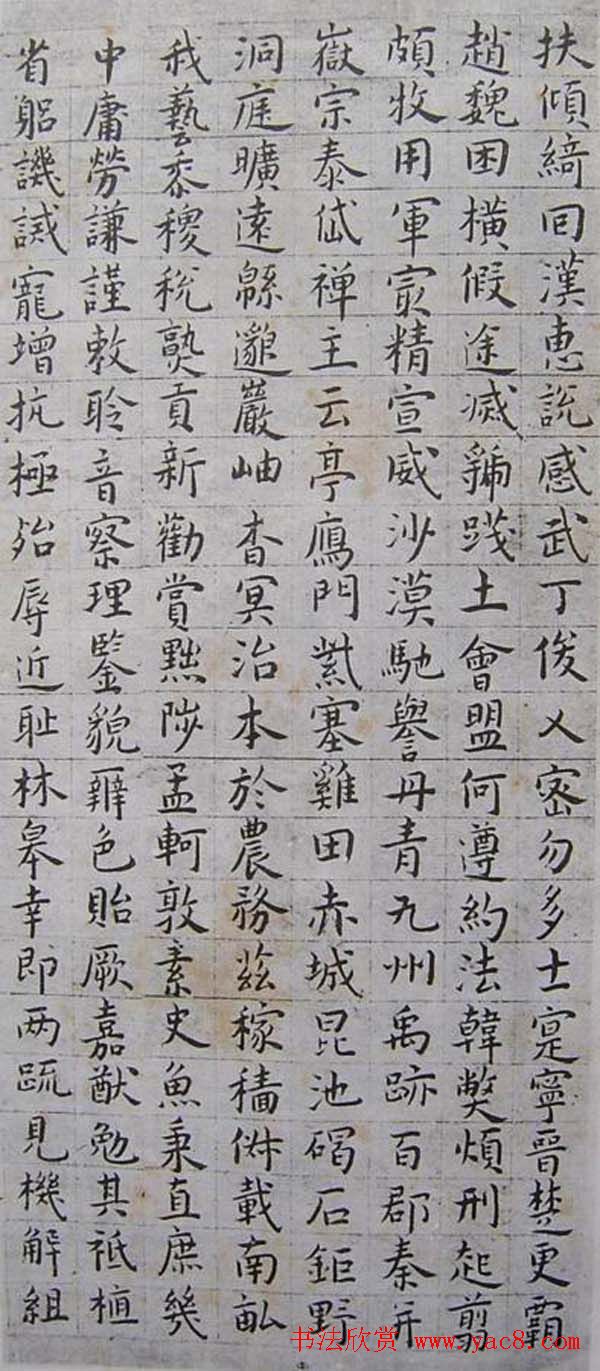 扶傾綺回漢惠說感武丁俊乂密勿多士寔寧晉楚更霸
趙魏困橫假途滅虢踐土會盟何遵約法韓弊煩刑起翦
頗牧用軍㝡精宣威沙漠馳譽丹青九州禹跡百郡秦并
嶽宗泰岱禪主云亭鴈門紫塞雞田赤城昆池碣石鉅野
洞庭曠遠緜邈巖岫杳冥治本於農務茲稼穡俶載南畝
我藝黍稷稅熟貢新勸賞黜陟孟軻敦素史魚秉直庶幾
中庸勞謙謹敕聆音察理鑒貌辨色貽厥嘉猷勉其祗植
省躬譏誡寵增抗極殆辱近耻林皋幸即两疏見機解組
书法欣赏·www.yac8.com